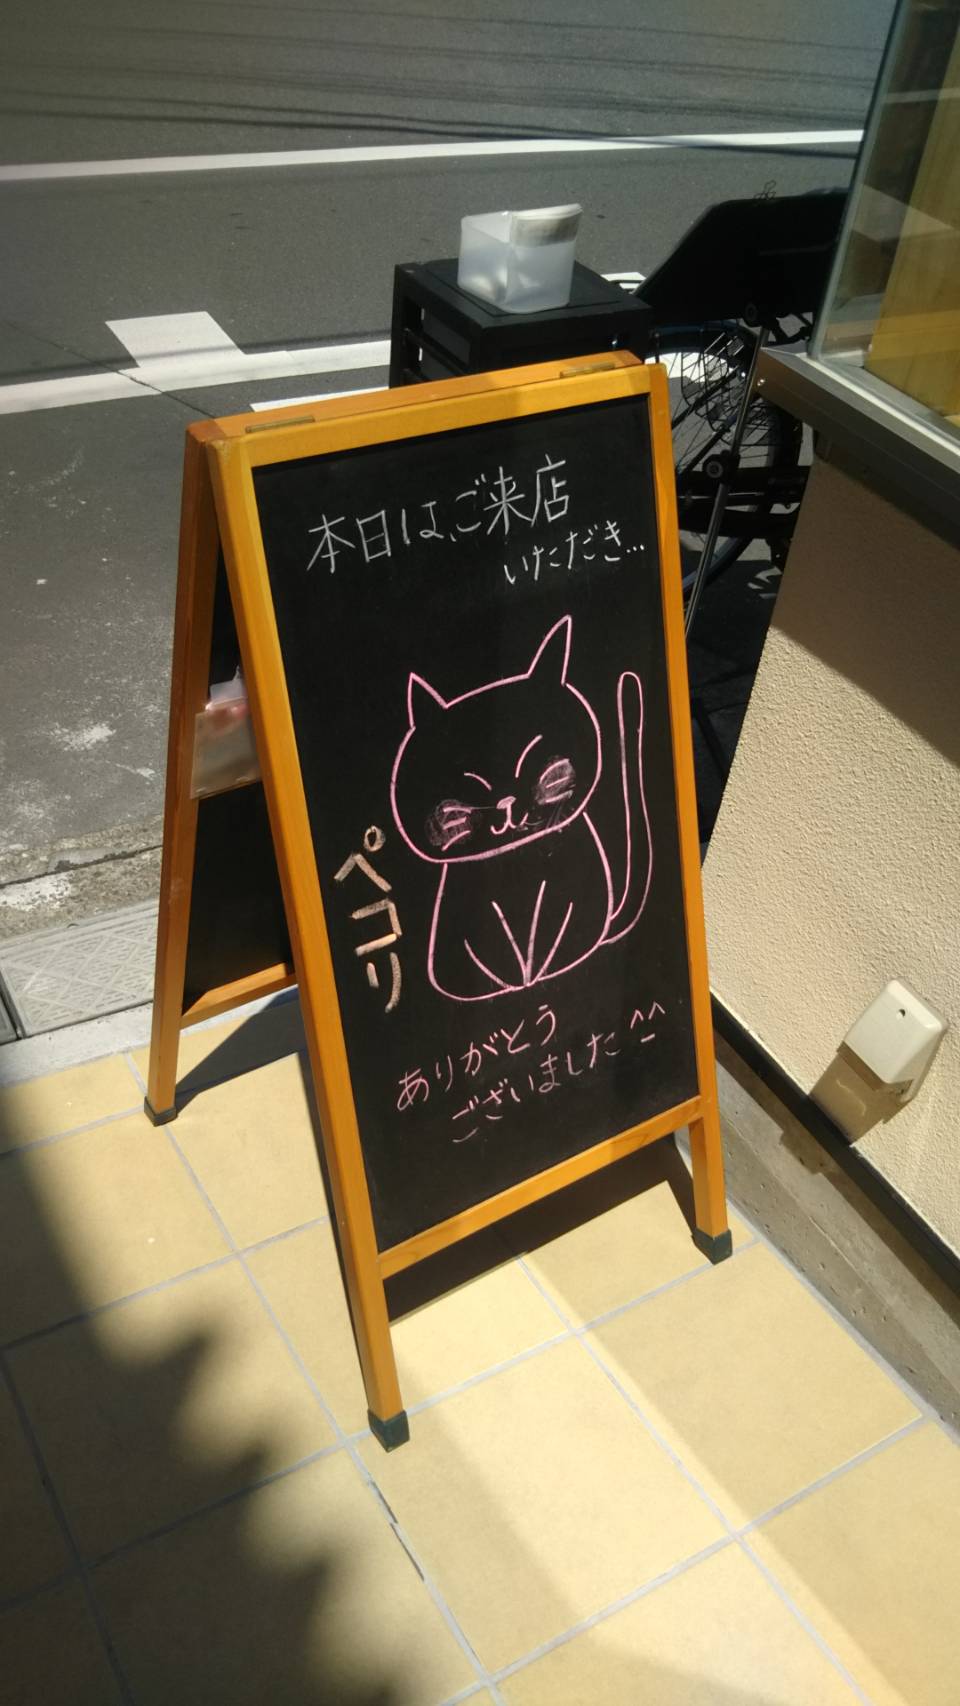 本日は、ご来店
いただき…
ペコリ
ありがとう
ございました^_^